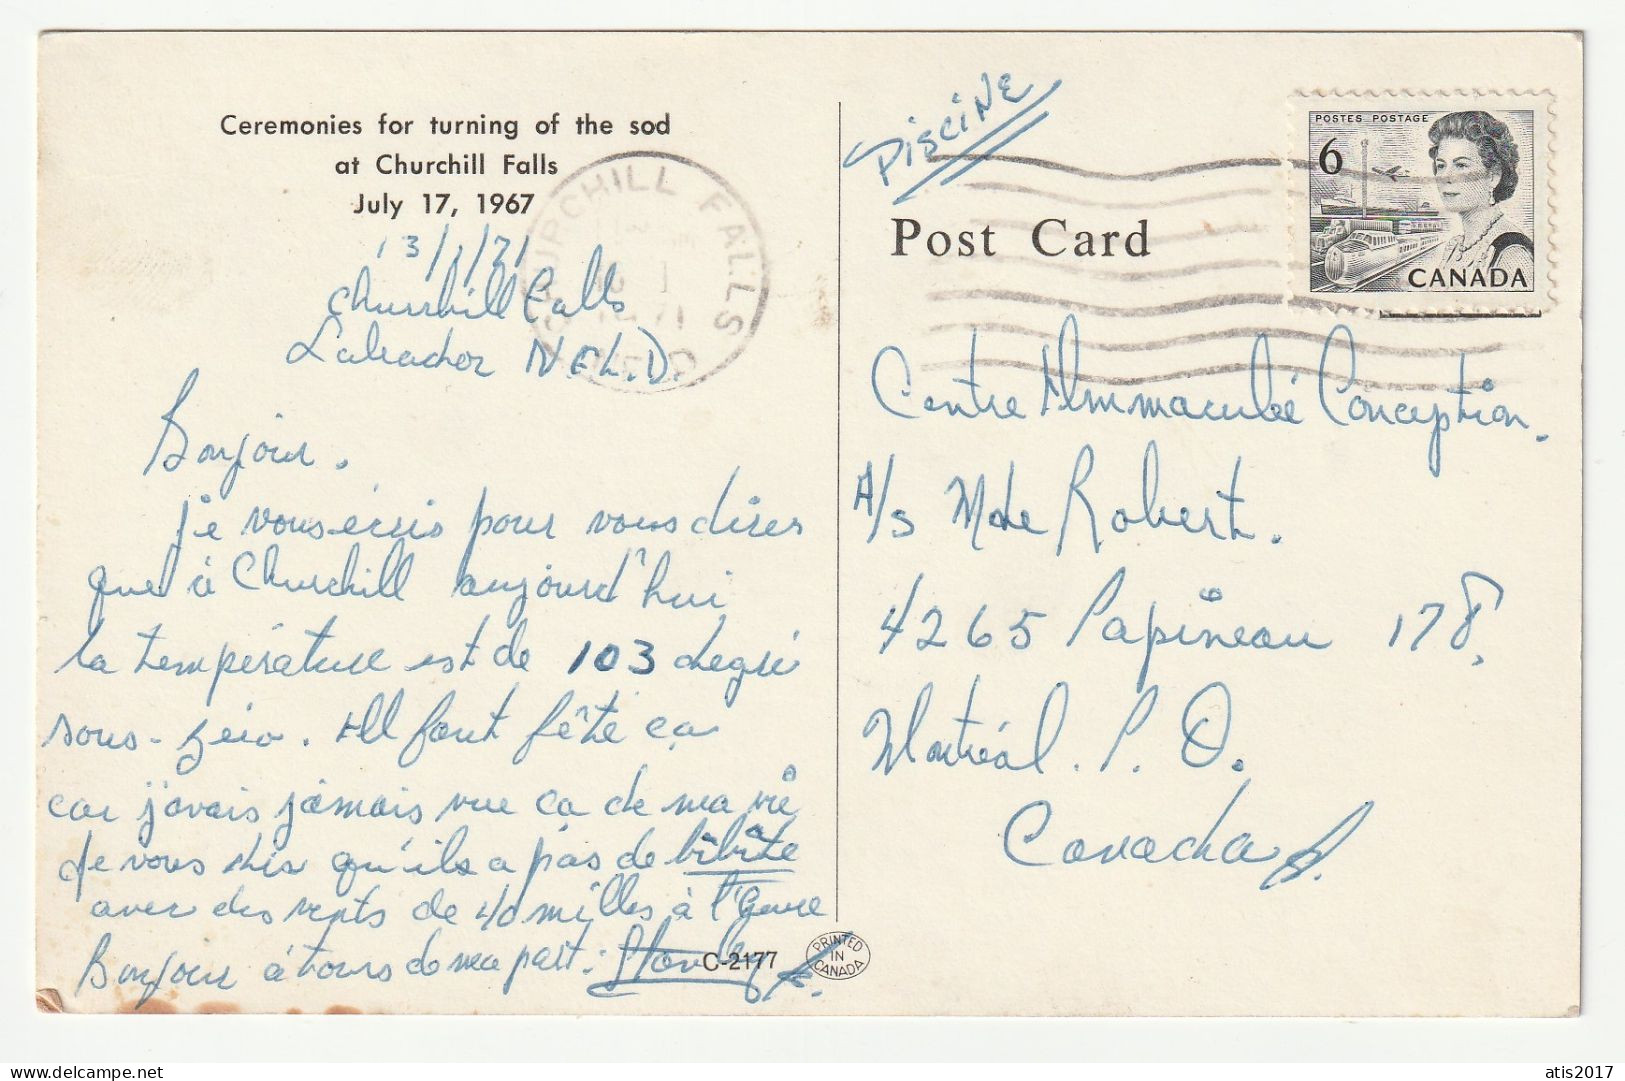 Ceremonies for turning of the sod
at Churchill Falls
July 17, 1967
13/1/71
Churchill Falls
Labrador N.F.L.D.
Bonjour.
je vous écris pour vous dires
que à Churchill aujourd'hui
la température est de 103 degré
sous-zéro. Il faut fêté ça
car j'avais jamais vue ça de ma vie
Je vous dis qu'ils a pas de bibite
avec des vents de 40 milles à l'heure
Bonjour à tours de ma part:
C-2177
PRINTED IN CANADA
PisciNE
Post Card
CHURCHILL FALLS
NFLD
POSTES POSTAGE
6
CANADA
Centre Immaculée Conception.
A/s Mde Robert.
4265 Papineau 178.
Montréal. P. Q.
Canada
atis2017